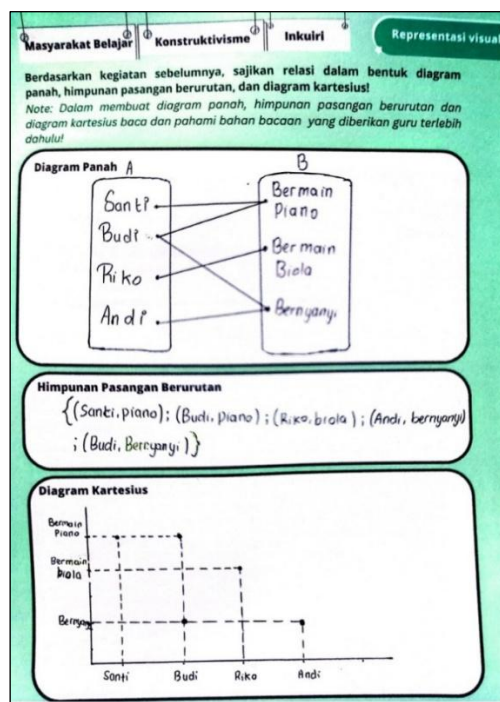 Masyarakat Belajar
Konstruktivisme
Inkuiri
Representasi visual
Berdasarkan kegiatan sebelumnya, sajikan relasi dalam bentuk diagram
panah, himpunan pasangan berurutan, dan diagram kartesius!
Note: Dalam membuat diagram panah, himpunan pasangan berurutan dan
diagram kartesius baca dan pahami bahan bacaan yang diberikan guru terlebih
dahulu!
Diagram Panah A
B
Santi
Budi
Riko
Andi
Bermain
Piano
Bermain
Biola
Bernyanyi
Himpunan Pasangan Berurutan
{(Santi, piano); (Budi, Piano); (Riko, biola); (Andi, bernyanyi)
; (Budi, Bernyanyi)}
Diagram Kartesius
Bermain
Piano
Bermain
biola
Santi
Budi
Riko
Andi